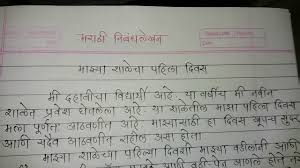 मराठी निबंधलेखन
माझ्या शाळेचा पहिला दिवस
मी दहावीचा विद्यार्थी आहे. या वर्षीच मी नवीन
शाळेत प्रवेश घेतलेला आहे. या शाळेतील माझा पहिला दिवस
मला पूर्णत आठवणीत आहे. माझ्यासाठी हा दिवस खूपच सुंदर
आणि सदैव आठवणीत राहील असा होता.
माझ्या शाळेच्या पहिल्या दिवशी माझ्या वडीलांनी
आणि वही पेन